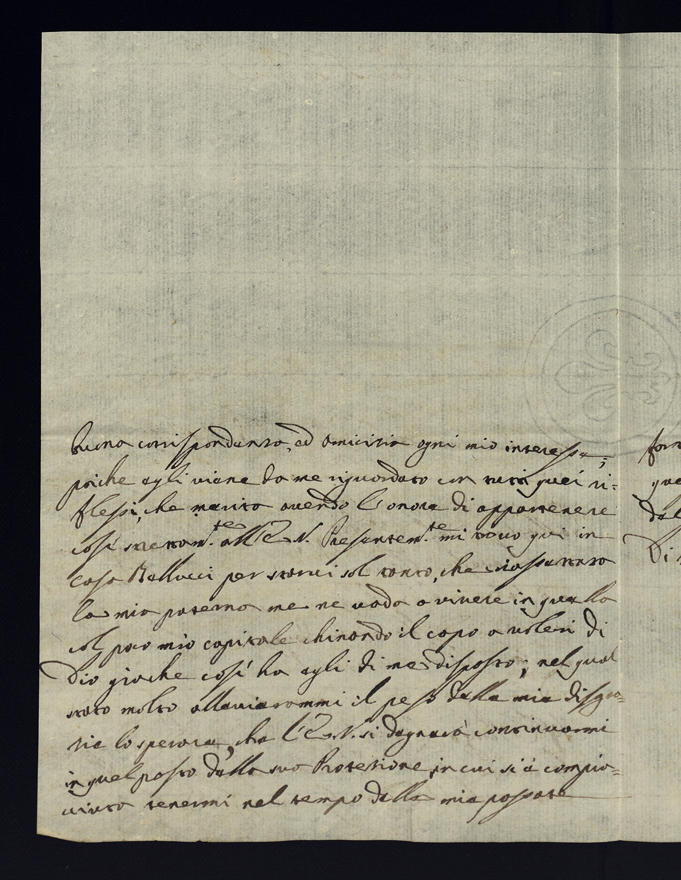 buona corrispondenza, ed amicizia ogni mio interesse;
poiche egli viene da me riguardato con tutti quei ri=
flessi, che merita avendo l'onore di appartenere
così strettam.te all'E. V. Presentem.te mi trovo qui in
casa Bellucci per starci sol tanto, che riassettata
la mia paterna me ne vada a vivere in quella
col poco mio capitale chinando il capo a voleri di
Dio giache così ha egli di me disposto; nel qual
stato molto allaviarammi il peso della mia disgra=
zia lo sperare, che l'E. V. si degnarà continuarmi
in quel posto della sua Protezione, in cui si è compia=
ciuta tenermi nel tempo della mia passata